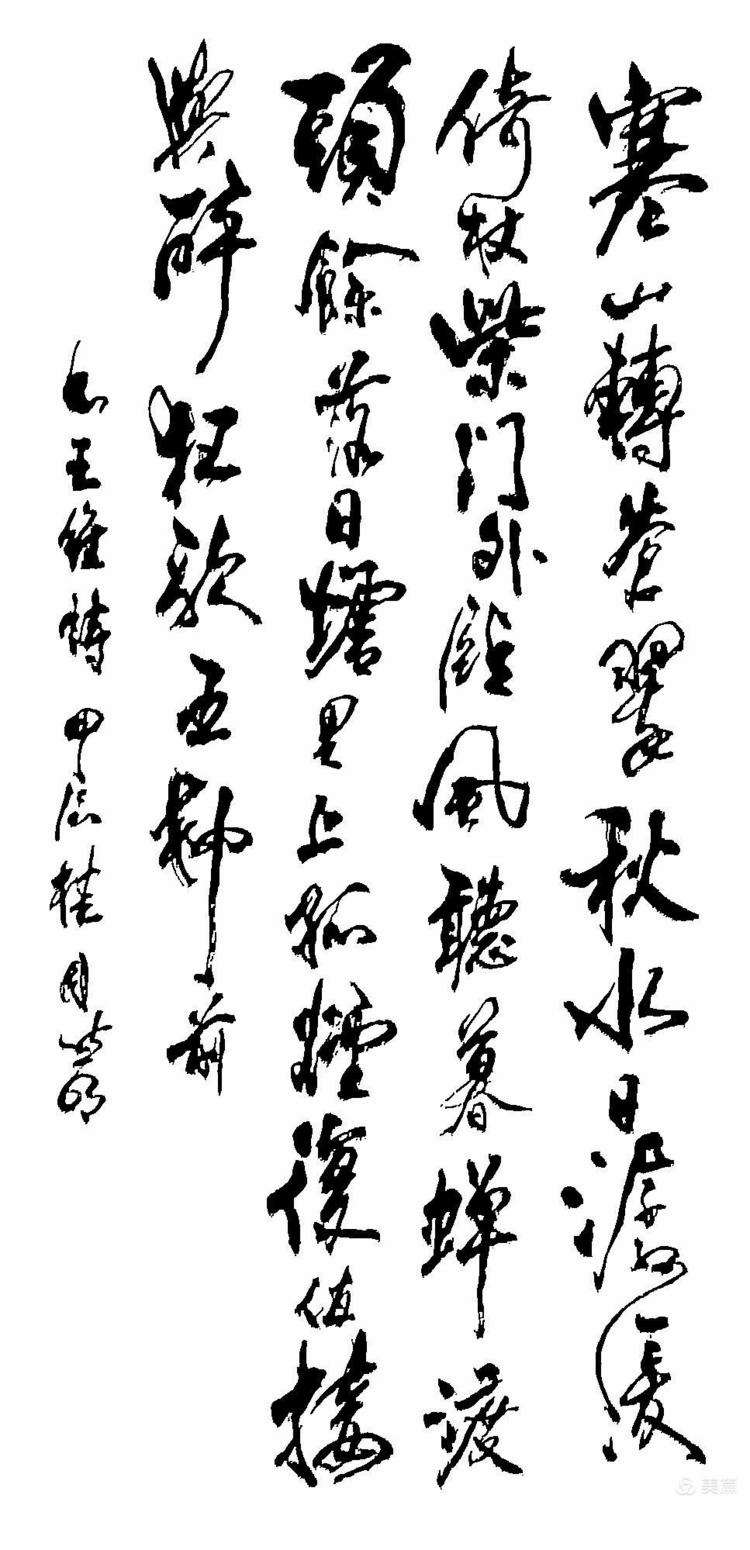 寒山轉蒼翠秋水日潺湲
倚杖柴门外臨風聽暮蝉渡
頭餘落日墟里上孤煙復值接
輿醉狂歌五柳前
王維詩甲辰桂月
美篇